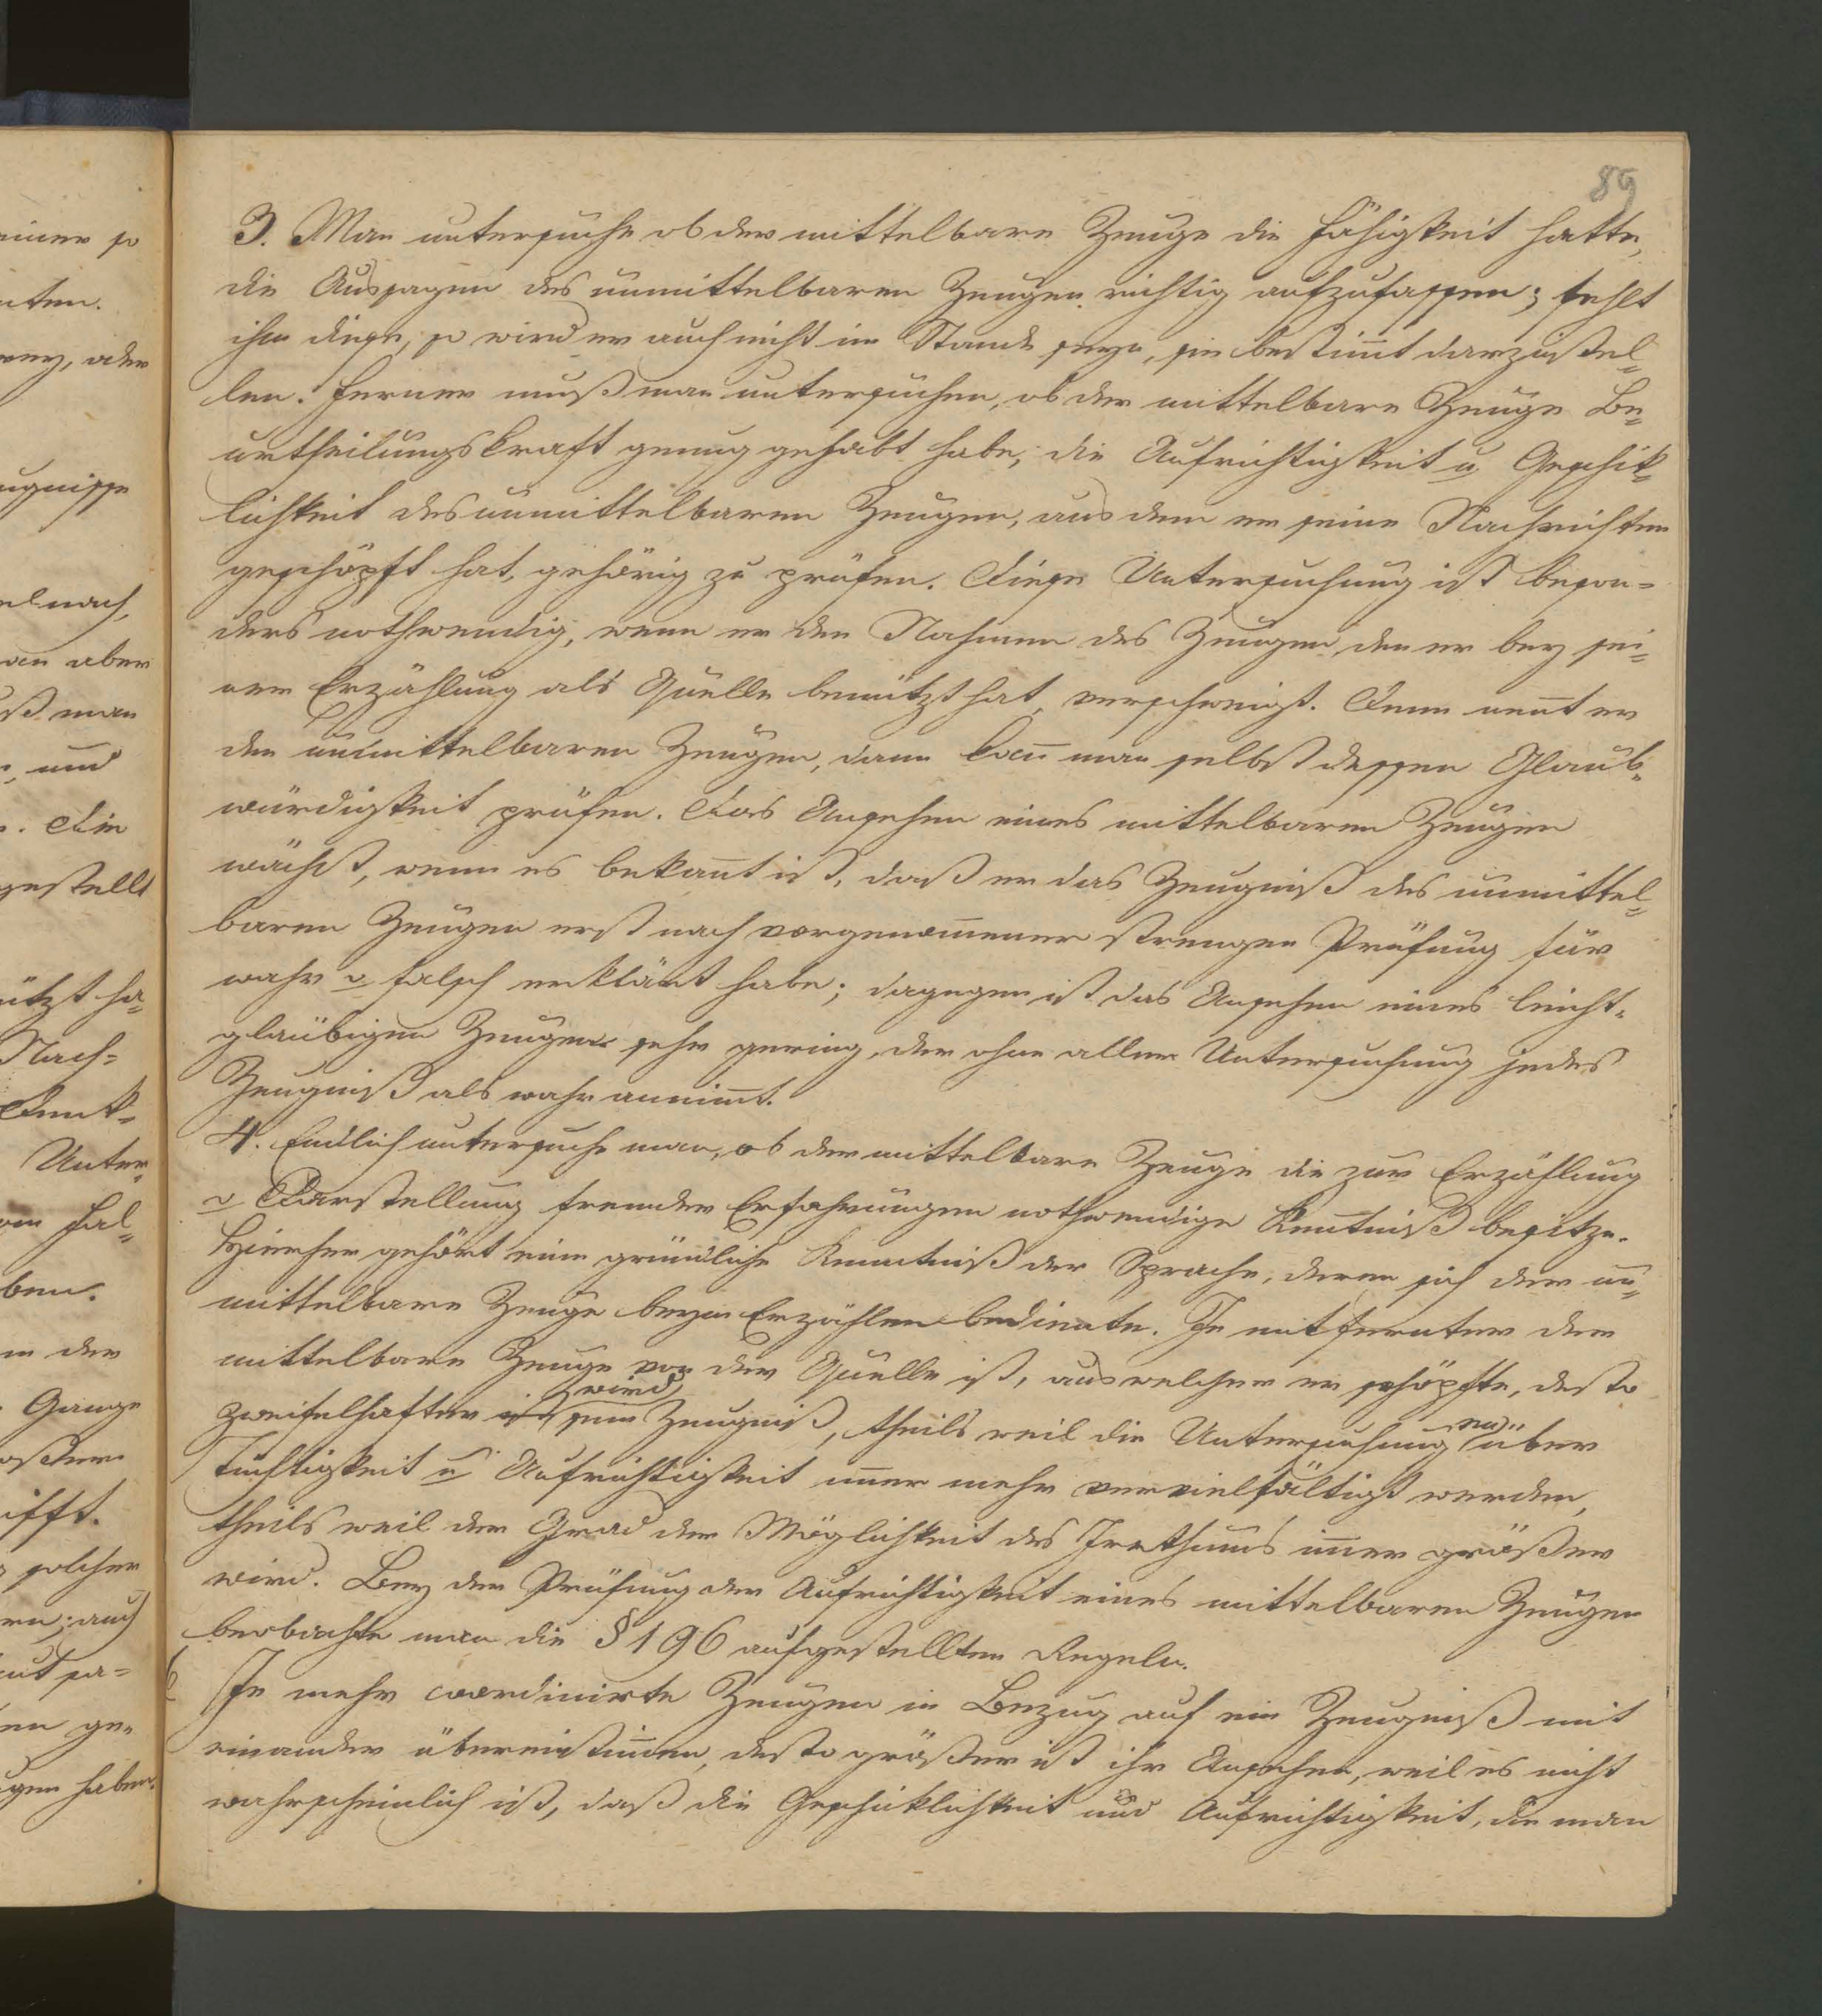 89
3. Man untersuche ob der mittelbare Zeuge die Fähigkeit hatte,
die Aussagen des unmittelbaren Zeugen richtig aufzufassen; fehlt
ihm diese, so wird er auch nicht im Stande seyn, sie bestim̄t darzustel=
len. Ferner muß man untersuchen, ob der mittelbare Zeuge Be=
urtheilungskraft genug gehabt habe, die Aufrichtigkeit u Geschik=
lichkeit des unmittelbaren Zeugen, aus dem er seine Nachrichten
geschöpft hat, gehörig zu prüfen. Diese Untersuchung ist beson=
ders nothwendig, wenn er den Nahmen des Zeugen, den er bey sei=
ner Erzählung als Quelle benützt hat, verschweigt. Denn nen̄t er
den unmittelbaren Zeugen, dann kan̄ man selbst dessen Glaub=
würdigkeit prüfen. Das Ansehen eines mittelbaren Zeugen
wächst, wenn es bekan̄t ist, daß er das Zeugniß des unmittel=
baren Zeugen erst nach vorgenom̄ener strengen Prüfung für
wahr o falsch erklärt habe; dagegen ist das Ansehen eines leicht=
gläubigen Zeugen sehr gering, der ohne aller Untersuchung jedes
Zeugniß als wahr annim̄t.
4. Endlich untersuche man, ob der mittelbare Zeuge die zur Erzählung
o Darstellung fremder Erfahrungen nothwendige Ken̄tniß besitze.
Hierher gehört eine gründliche Kenntniß der Sprache, deren sich der un=
mittelbare Zeuge beym Erzählen bediente. Je entfernter der
mittelbare Zeuge von der Quelle ist, aus welcher er schöpfte, desto
zweifelhafter ist wird sein Zeugniß, theils weil die Untersuchung en über
Tüchtigkeit u Aufrichtigkeit im̄er mehr vervielfältigt werden,
theils weil der Grad der Möglichkeit des Irrthums im̄er größer
wird. Bey der Prüfung der Aufrichtigkeit eines mittelbaren Zeugen
beobachte man die § 196 aufgestellten Regeln.
Je mehr coordinirte Zeugen in Bezug auf ein Zeugniß mit
einander übereinstim̄en, desto größer ist ihr Ansehen, weil es nicht
wahrscheinlich ist, daß die Geschicklichkeit und Aufrichtigkeit, die man